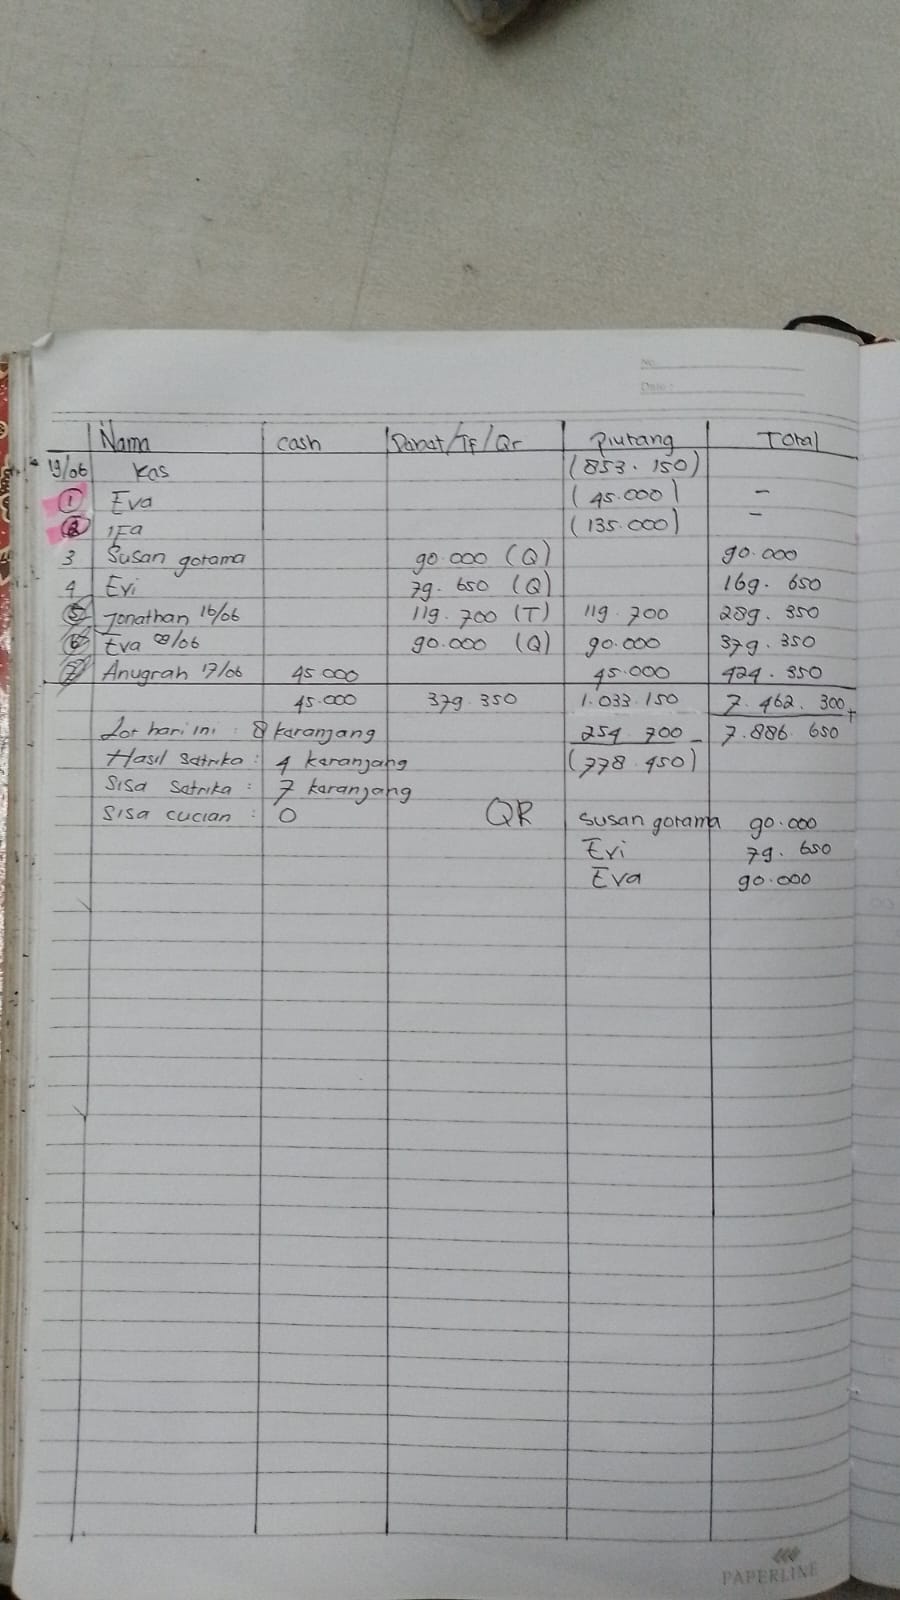 No.
Date :
Nama cash Danat/TF/Qr Piutang Total
19/06 kas (853.150)
1 Eva (45.000) -
2 IFa (135.000) -
3 Susan gotama 90.000 (Q) 90.000
4 Evi 79.650 (Q) 169.650
5 Jonathan 16/06 119.700 (T) 119.700 289.350
6 Eva /06 90.000 (Q) 90.000 379.350
7 Anugrah 17/06 45.000 45.000 424.350
45.000 379.350 1.033.150 7.462.300 +
Lot hari ini : 8 karanjang 254.700 - 7.886.650
Hasil Satrika : 4 karanjang (778.450)
Sisa Satrika : 7 karanjang
Sisa cucian : 0 QR Susan gotama 90.000
Evi 79.650
Eva 90.000
PAPERLINE